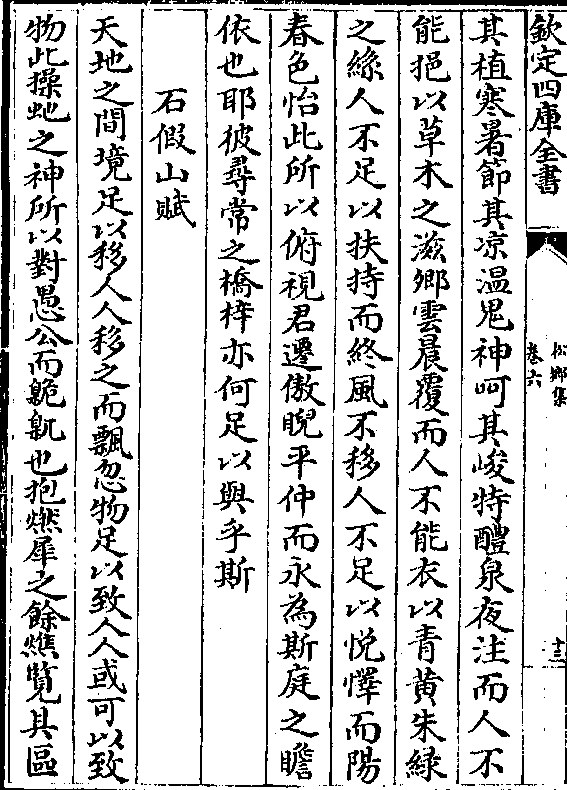 欽定四庫全書
松鄉集
卷六
十三
其植寒暑節其凉温鬼神呵其峻特醴泉夜注而人不
能挹以草木之滋鄉雲晨覆而人不能衣以青黃朱綠
之絲人不足以扶持而終風不移人不足以悅懌而陽
春色怡此所以俯視君遷傲睨平仲而永為斯庭之瞻
依也耶彼尋常之橋梓亦何足以與乎斯
石假山賦
天地之間境足以移人人移之而飄忽物足以致人人或可以致
物此操虵之神所以對愚公而臲卼也抱燃犀之餘憔覽其區